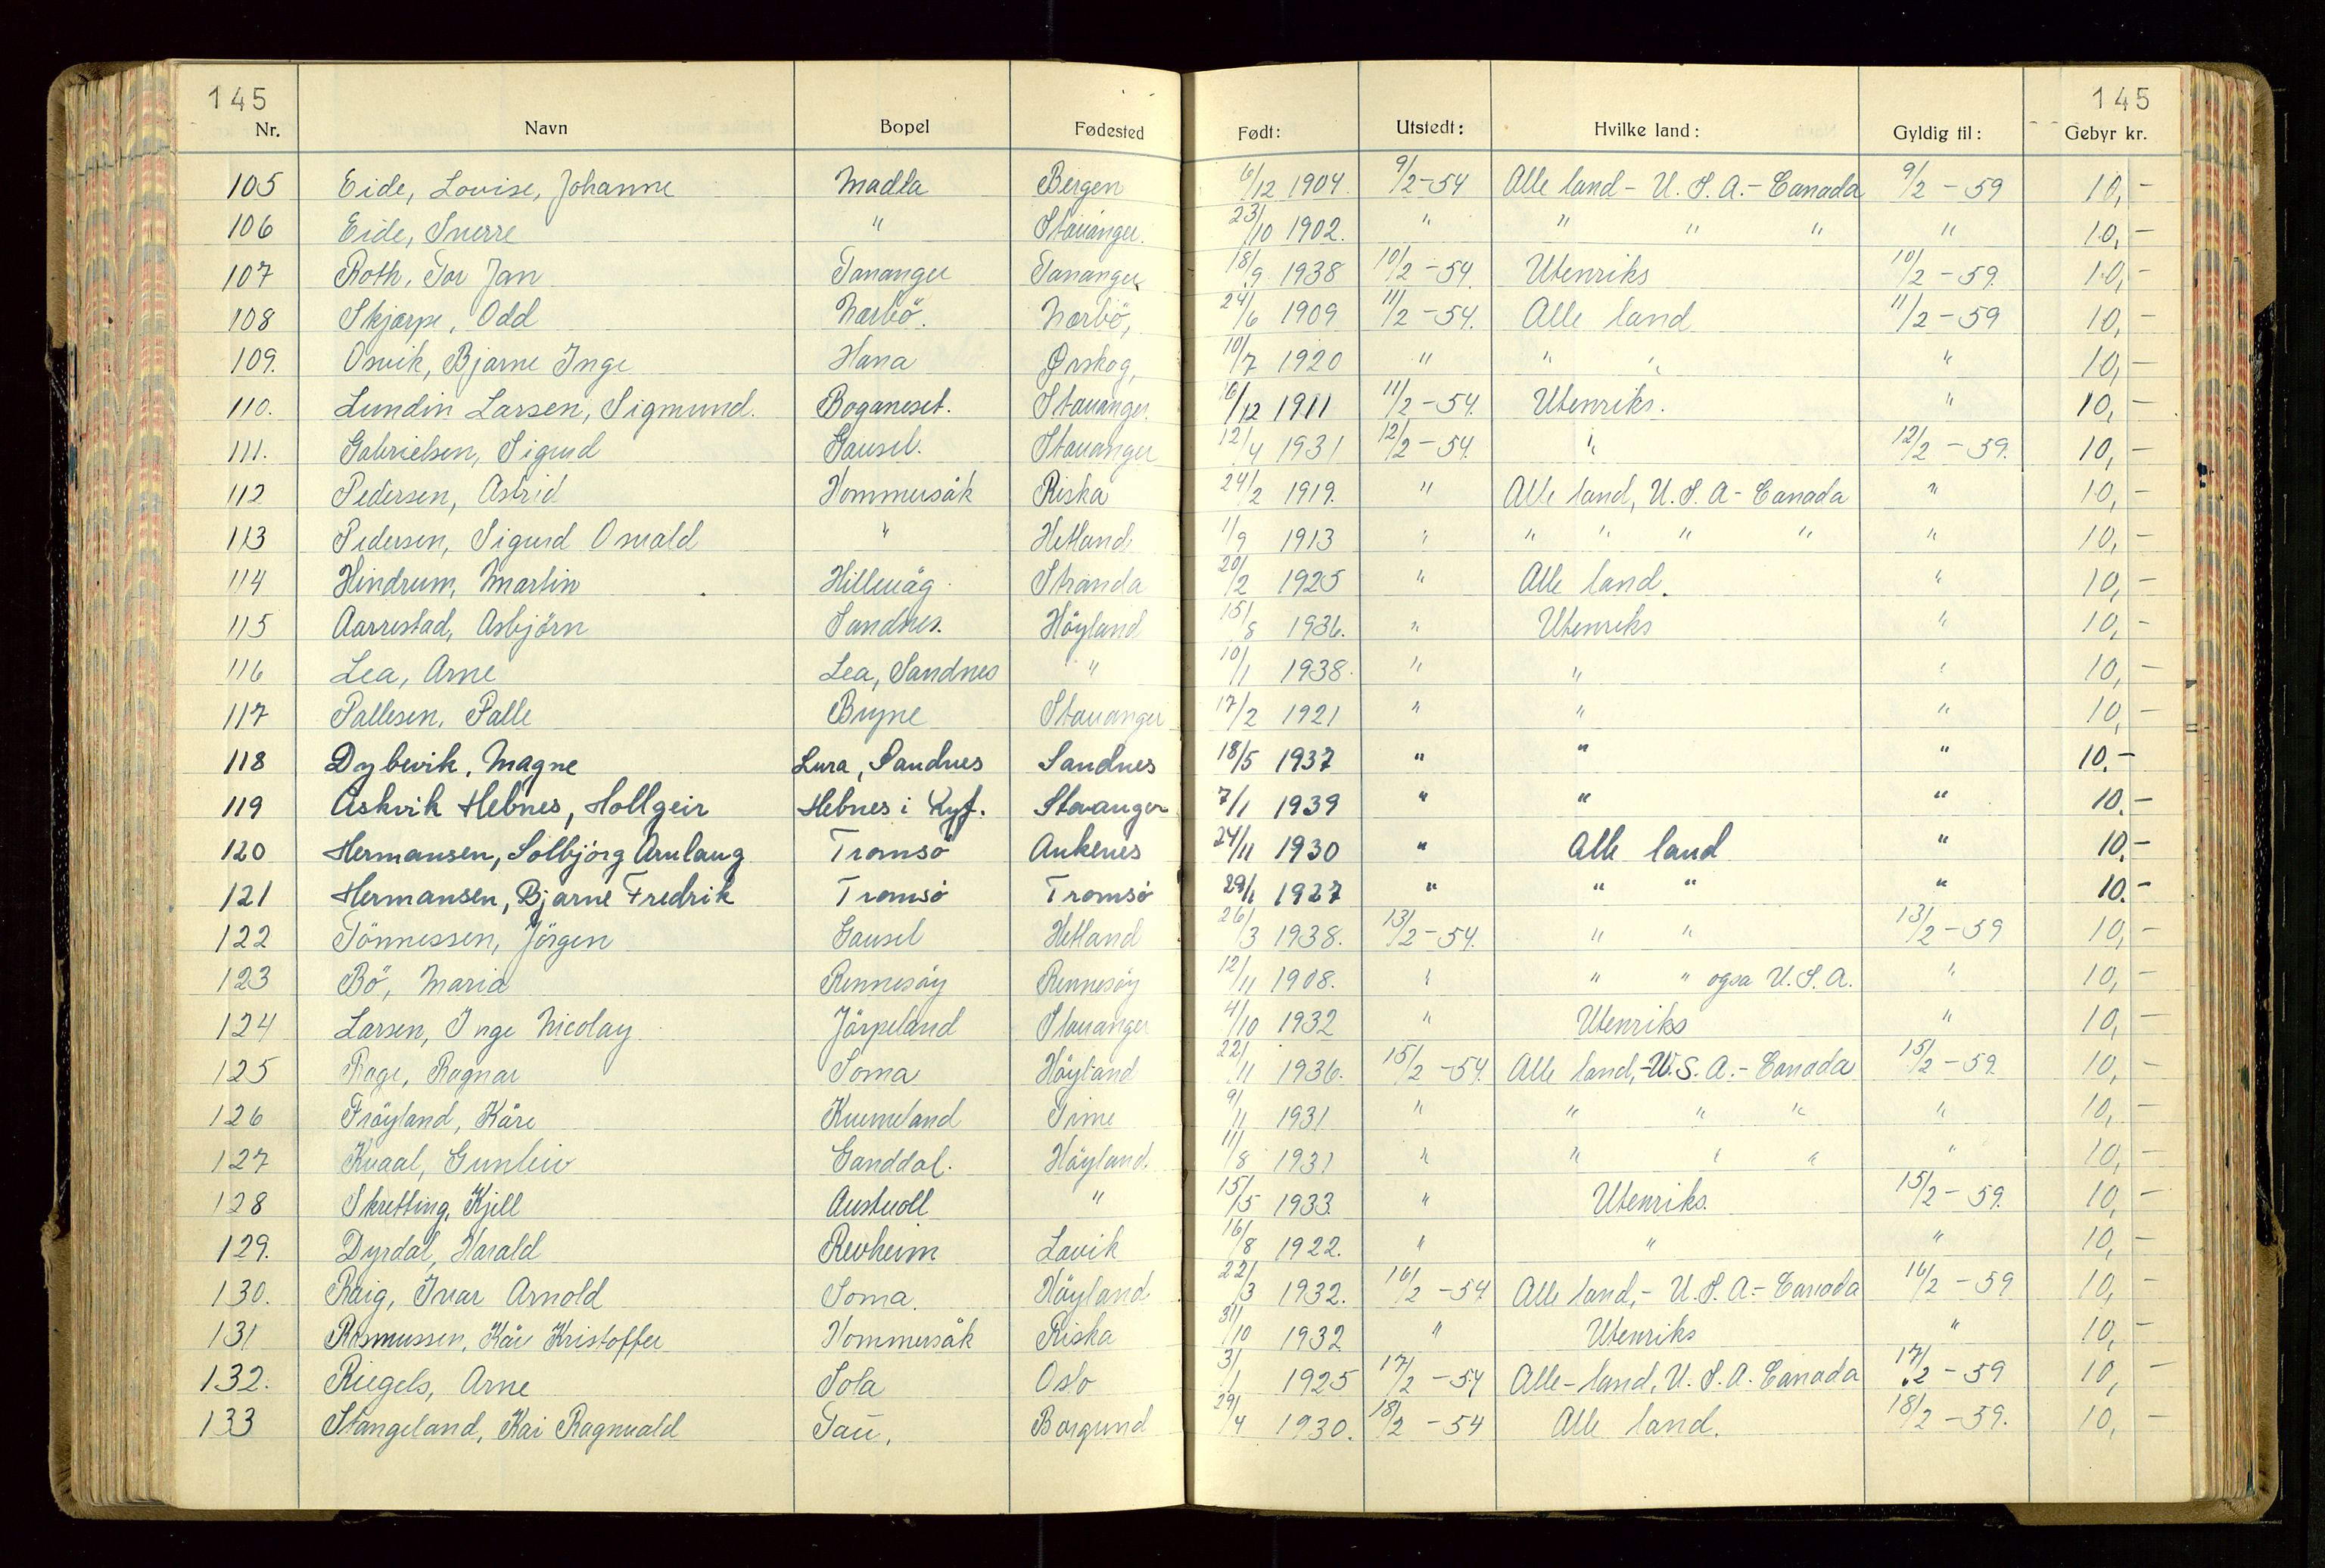 145 145
Nr. Navn Bopel Fødested Født: Utstedt: Hvilke land: Gyldig til: Gebyr kr.
105 Eide, Lovise, Johanne Madla Bergen 6/12 1904. 9/2-54 Alle land - U.S.A. - Canada 9/2 - 59 10,-
106 Eide, Sverre " Stavanger. 23/10 1902. " " " " " 10,-
107 Roth, Tor Jan Tananger Tananger 18/9 1938 10/2-54. Utenriks 10/2 - 59. 10,-
108 Skjærpe, Odd Nærbö. Nærbö, 24/6 1909 11/2-54. Alle land 11/2 - 59 10,-
109. Osvik, Bjarne Inge Hana Ørskog, 10/7 1920 " " " " 10,-
110. Lundin Larsen, Sigmund. Boganeset. Stavanger. 16/12 1911 11/2-54. Utenriks. " 10,-
111. Gabrielsen, Sigurd Gausel. Stavanger 12/4 1931 12/2-54. " 12/2 - 59. 10,-
112 Pedersen, Astrid Hommersåk Riska 24/2 1919. " Alle land, U.S.A - Canada " 10,-
113 Pedersen, Sigurd Osvald " Hetland 1/9 1913 " " " " " " 10,-
114 Hindrum, Martin Hillevåg Stranda 20/2 1925 " Alle land. " 10,-
115 Aarrestad, Asbjörn Sandnes. Höyland 15/8 1936. " Utenriks " 10,-
116 Lea, Arne Lea, Sandnes " 10/1 1938. " " " 10,-
117 Pallesen, Palle Bryne Stavanger 17/2 1921 " " " 10,-
118 Dybevik, Magne Lura, Sandnes Sandnes 18/5 1937 " " " 10.-
119 Askvik Hebnes, Hollgeir Hebnes i Ryf. Stavanger 7/1 1939 " " " 10.-
120 Hermansen, Solbjörg Arnlaug Tromsö Ankenes 24/11 1930 " Alle land " 10.-
121 Hermansen, Bjarne Fredrik Tromsö Tromsö 29/1 1927 " " " " 10.-
122 Tönnessen, Jörgen Gausel Hetland 26/3 1938. 13/2-54. " " 13/2-59 10,-
123 Bö, Maria Rennesöy Rennesöy 12/11 1908. " " " også U.S.A. " 10,-
124 Larsen, Inge Nicolay Jörpeland Stavanger 4/10 1932 " Utenriks " 10,-
125 Rage, Ragnar Soma Höyland 22/11 1936. 15/2-54. Alle land, - U.S.A. - Canada 15/2-59. 10,-
126 Fröyland, Kåre Kverneland Time 9/11 1931 " " " " " 10,-
127 Kvaal, Gunleiv Ganddal. Höyland. 11/8 1931 " " " " " 10,-
128 Skretting, Kjell Austvoll " 15/5 1933. " Utenriks. 15/2 - 59. 10,-
129. Dyrdal, Harald Revheim Lavik 16/8 1922. " " " 10,-
130. Raig, Ivar Arnold Soma. Höyland 22/3 1932. 16/2-54. Alle land, - U.S.A. - Canada 16/2 - 59 10,-
131 Rasmussen, Kåre Kristoffer Hommersåk Riska 31/10 1932 " Utenriks " 10,-
132. Riegels, Arne Sola Oslo 3/1 1925 17/2 - 54 Alle - land, U.S.A. Canada 17/2 - 59 10,-
133 Stangeland, Kai Ragnvald Tau, Borgund 29/4 1930. 18/2 - 54 Alle land. 18/2 - 59. 10,-